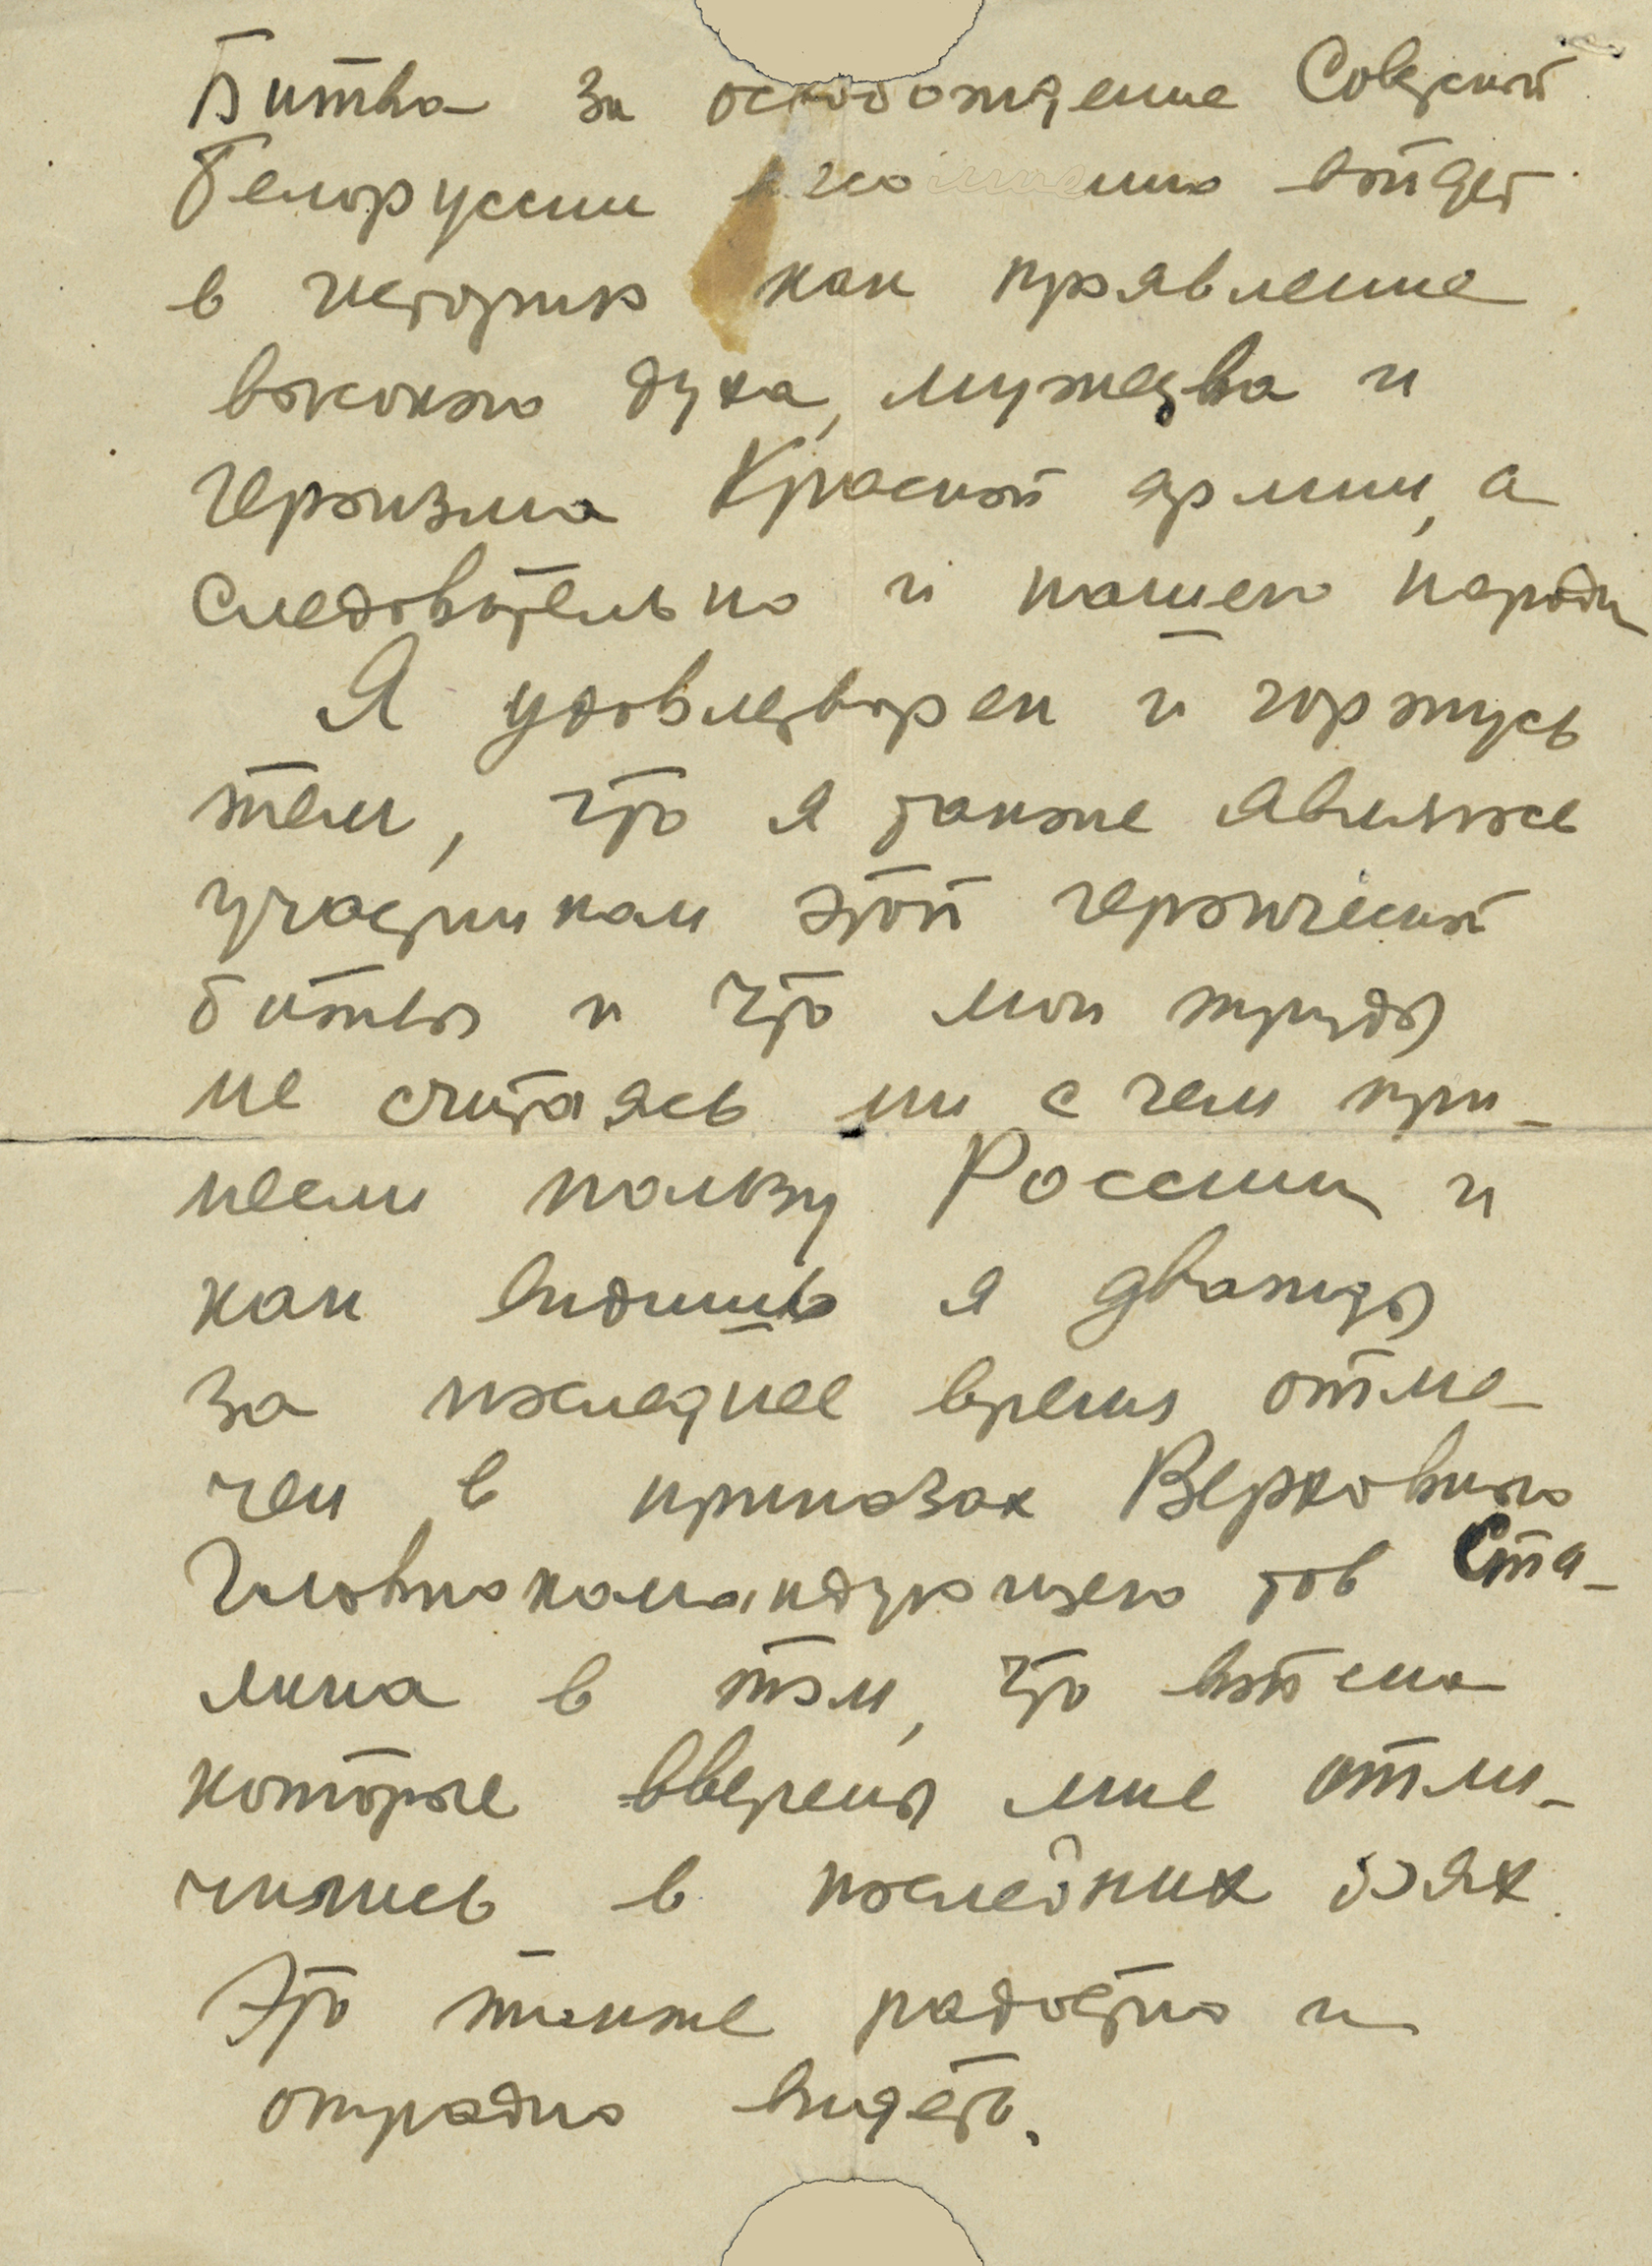 Битва за освобождение Советской
Белоруссии войдет
в историю как проявление
высокого духа, мужества и
героизма Красной армии, а
следовательно и нашего народа
Я удовлетворен и горжусь
тем, что я также являюсь
участником этой героической
битвы и что мои труды
не считаясь ни с чем при-
несли пользу России и
как видишь я дважды
за последнее время отме-
чен в приказах Верховного
Главнокомандующего тов Ста-
лина в том, что войска
которые вверены мне отли-
чились в последних боях.
Это также радостно и
отрадно видеть.